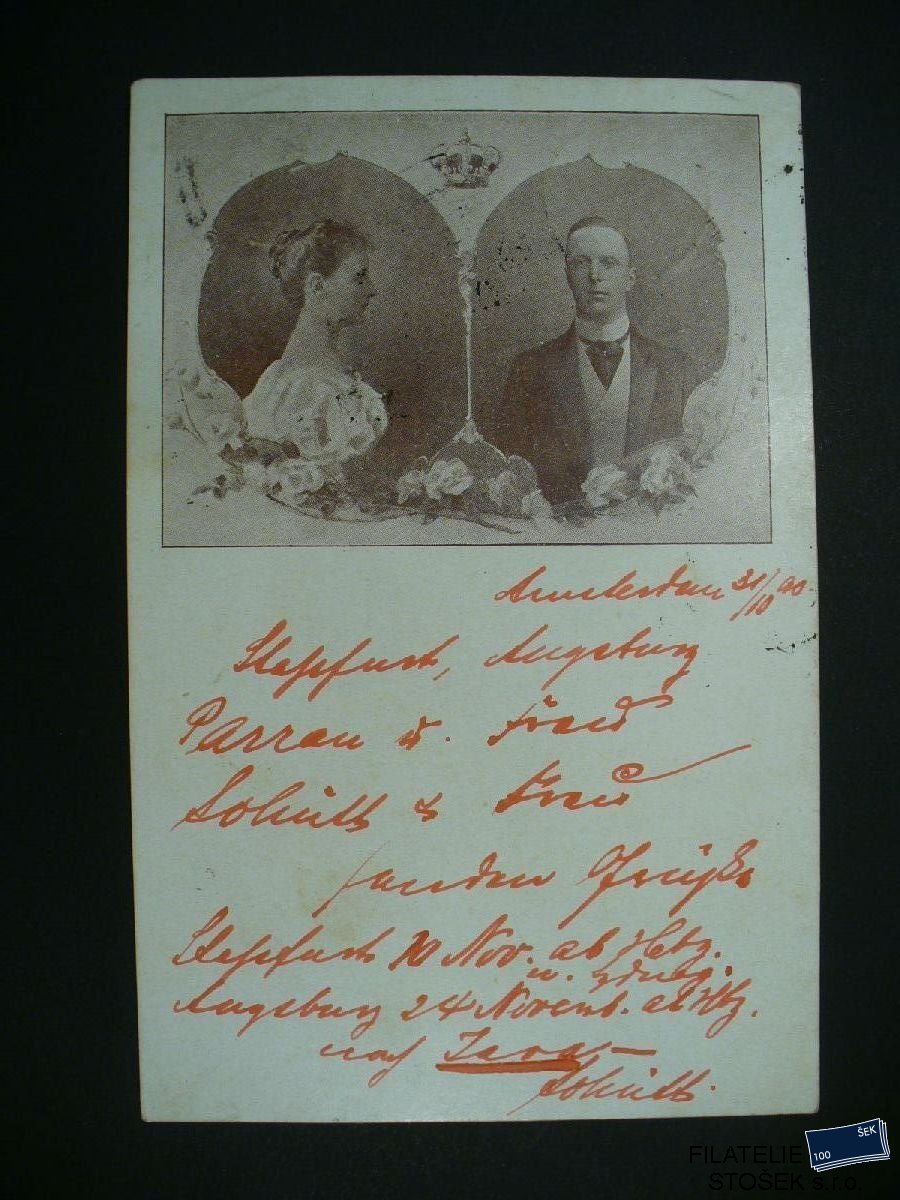 Amsterdam 31/10 00.
Stassfurt, Augsburg
Parrau u. Frau
Schütt & Frau
senden Grüße
Stassfurt 10 Nov. ab Hbg.
u. Sydney.
Augsburg 24 Novemb. ab Hbg.
nach Java
Schütt.
FILATELIE
STOŠEK s.r.o.
100 ŠEK